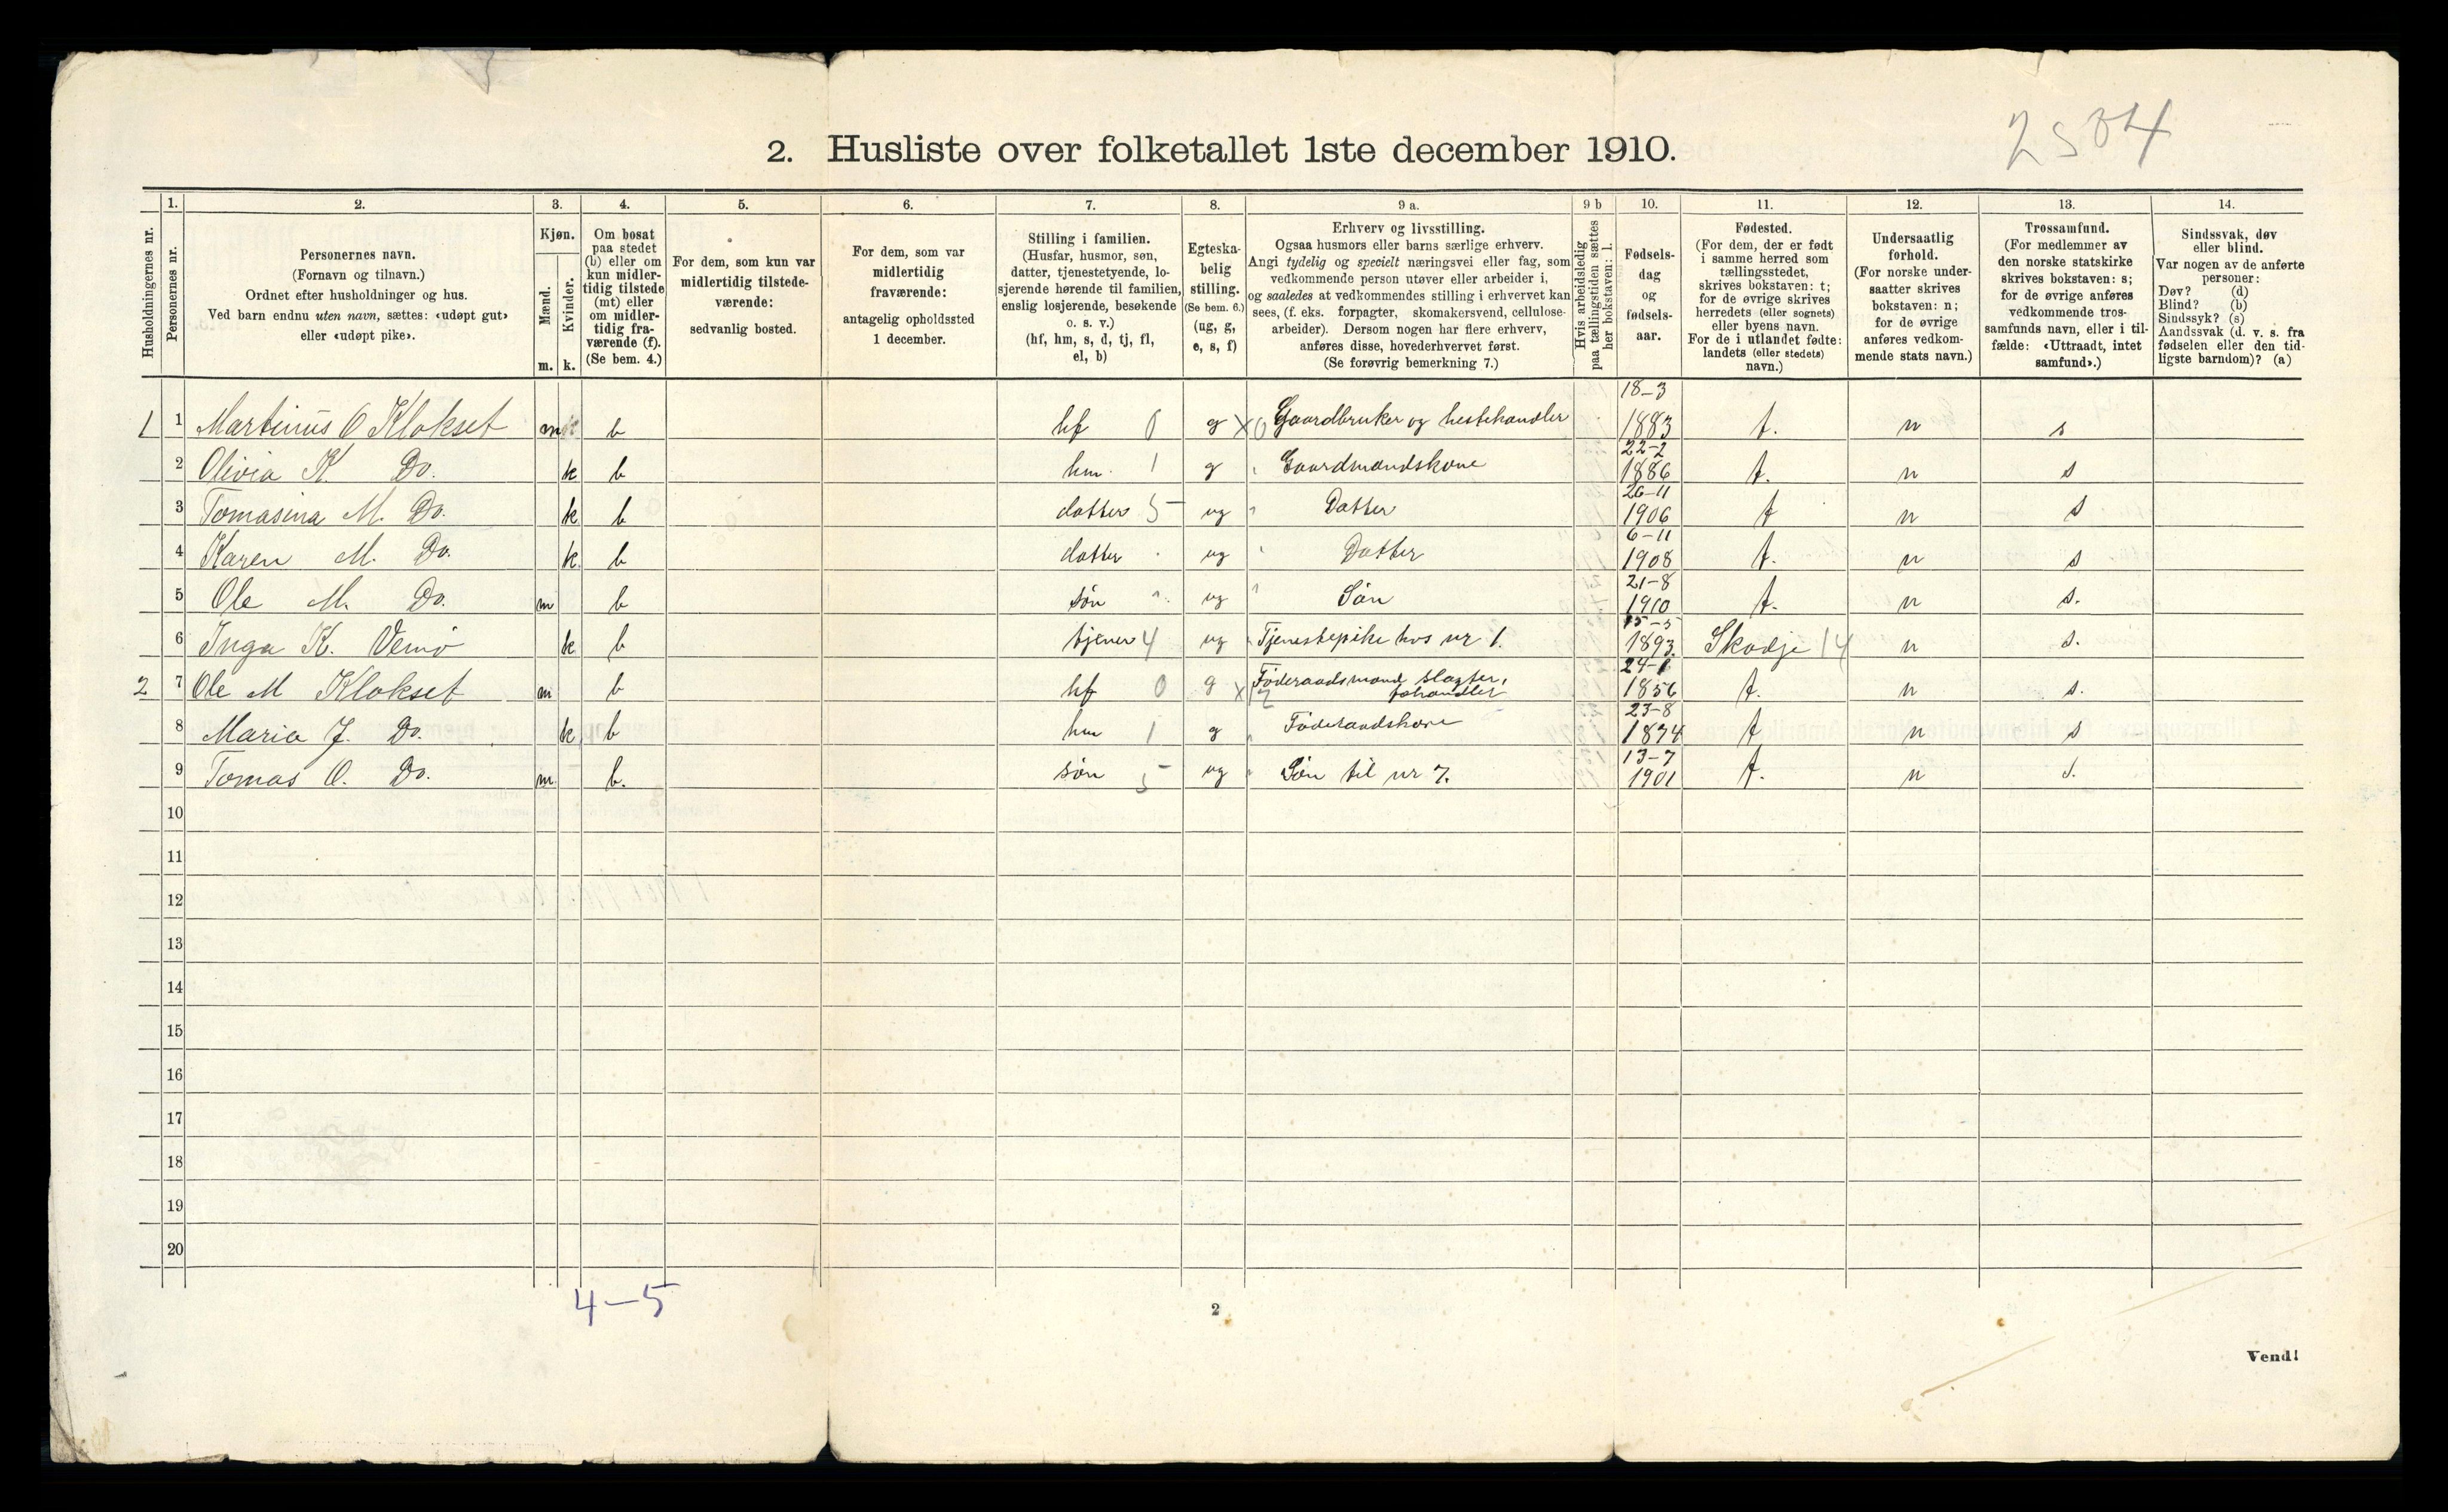 2504
2. Husliste over folketallet 1ste december 1910.
Husholdningernes nr.
1. Personernes nr.
2. Personernes navn.
(Fornavn og tilnavn.)
Ordnet efter husholdninger og hus.
Ved barn endnu uten navn, sættes: «udøpt gut»
eller «udøpt pike».
3. Kjøn.
Mænd. m.
Kvinder. k.
4. Om bosat
paa stedet
(b) eller om
kun midler-
tidig tilstede
(mt) eller
om midler-
tidig fra-
værende (f).
(Se bem. 4.)
5. For dem, som kun var
midlertidig tilstede-
værende:
sedvanlig bosted.
6. For dem, som var
midlertidig
fraværende:
antagelig opholdssted
1 december.
7. Stilling i familien.
(Husfar, husmor, søn,
datter, tjenestetyende, lo-
sjerende hørende til familien,
enslig losjerende, besøkende
o. s. v.)
(hf, hm, s, d, tj, fl,
el, b)
8. Egteska-
belig
stilling.
(Se bem. 6.)
(ug, g,
e, s, f)
9 a. Erhverv og livsstilling.
Ogsaa husmors eller barns særlige erhverv.
Angi tydelig og specielt næringsvei eller fag, som
vedkommende person utøver eller arbeider i,
og saaledes at vedkommendes stilling i erhvervet kan
sees, (f. eks. forpagter, skomakersvend, cellulose-
arbeider). Dersom nogen har flere erhverv,
anføres disse, hovederhvervet først.
(Se forøvrig bemerkning 7.)
9 b Hvis arbeidsledig
paa tællingstiden sættes
her bokstaven: l.
10. Fødsels-
dag
og
fødsels-
aar.
11. Fødested.
(For dem, der er født
i samme herred som
tællingsstedet,
skrives bokstaven: t;
for de øvrige skrives
herredets (eller sognets)
eller byens navn.
For de i utlandet fødte:
landets (eller stedets)
navn.)
12. Undersaatlig
forhold.
(For norske under-
saatter skrives
bokstaven: n;
for de øvrige
anføres vedkom-
mende stats navn.)
13. Trossamfund.
(For medlemmer av
den norske statskirke
skrives bokstaven: s;
for de øvrige anføres
vedkommende tros-
samfunds navn, eller i til-
fælde: «Uttraadt, intet
samfund».)
14. Sindssvak, døv
eller blind.
Var nogen av de anførte
personer:
Døv? (d)
Blind? (b)
Sindssyk? (s)
Aandssvak (d. v. s. fra
fødselen eller den tid-
ligste barndom)? (a)
1 1 Martinus O Klokset m b hf 0 g X 0 Gaardbruker og hestehandler 18-3 1883 t. n s
2 Olivia K. Do. k b hm. 1 g Gaardmandskone 22-2 1886 t. n s
3 Tomasina M. Do. k b datter 5 ug Datter 26-11 1906 t n s
4 Karen M. Do. k. b datter ug Datter 6-11 1908 t. n s
5 Ole M. Do. m b søn ug Søn 21-8 1910 t. n s.
6 Inga K. Vemø k b tjener 4 ug Tjenestepike hos nr 1. 15-5 1893. Skodje 14 n s.
2 7 Ole M Klokset m b hf 0 g X Føderaadsmand slagter, fehandler 24-1 1856 t. n s.
8 Maria J. Do. k b hm 1 g Føderaadskone 23-8 1874 t n s
9 Tomas O. Do. m b. søn 5 ug Søn til nr 7. 13-7 1901 t. n s.
10
11
12
13
14
15
16
17
18
19
20
4-5
2
Vend!